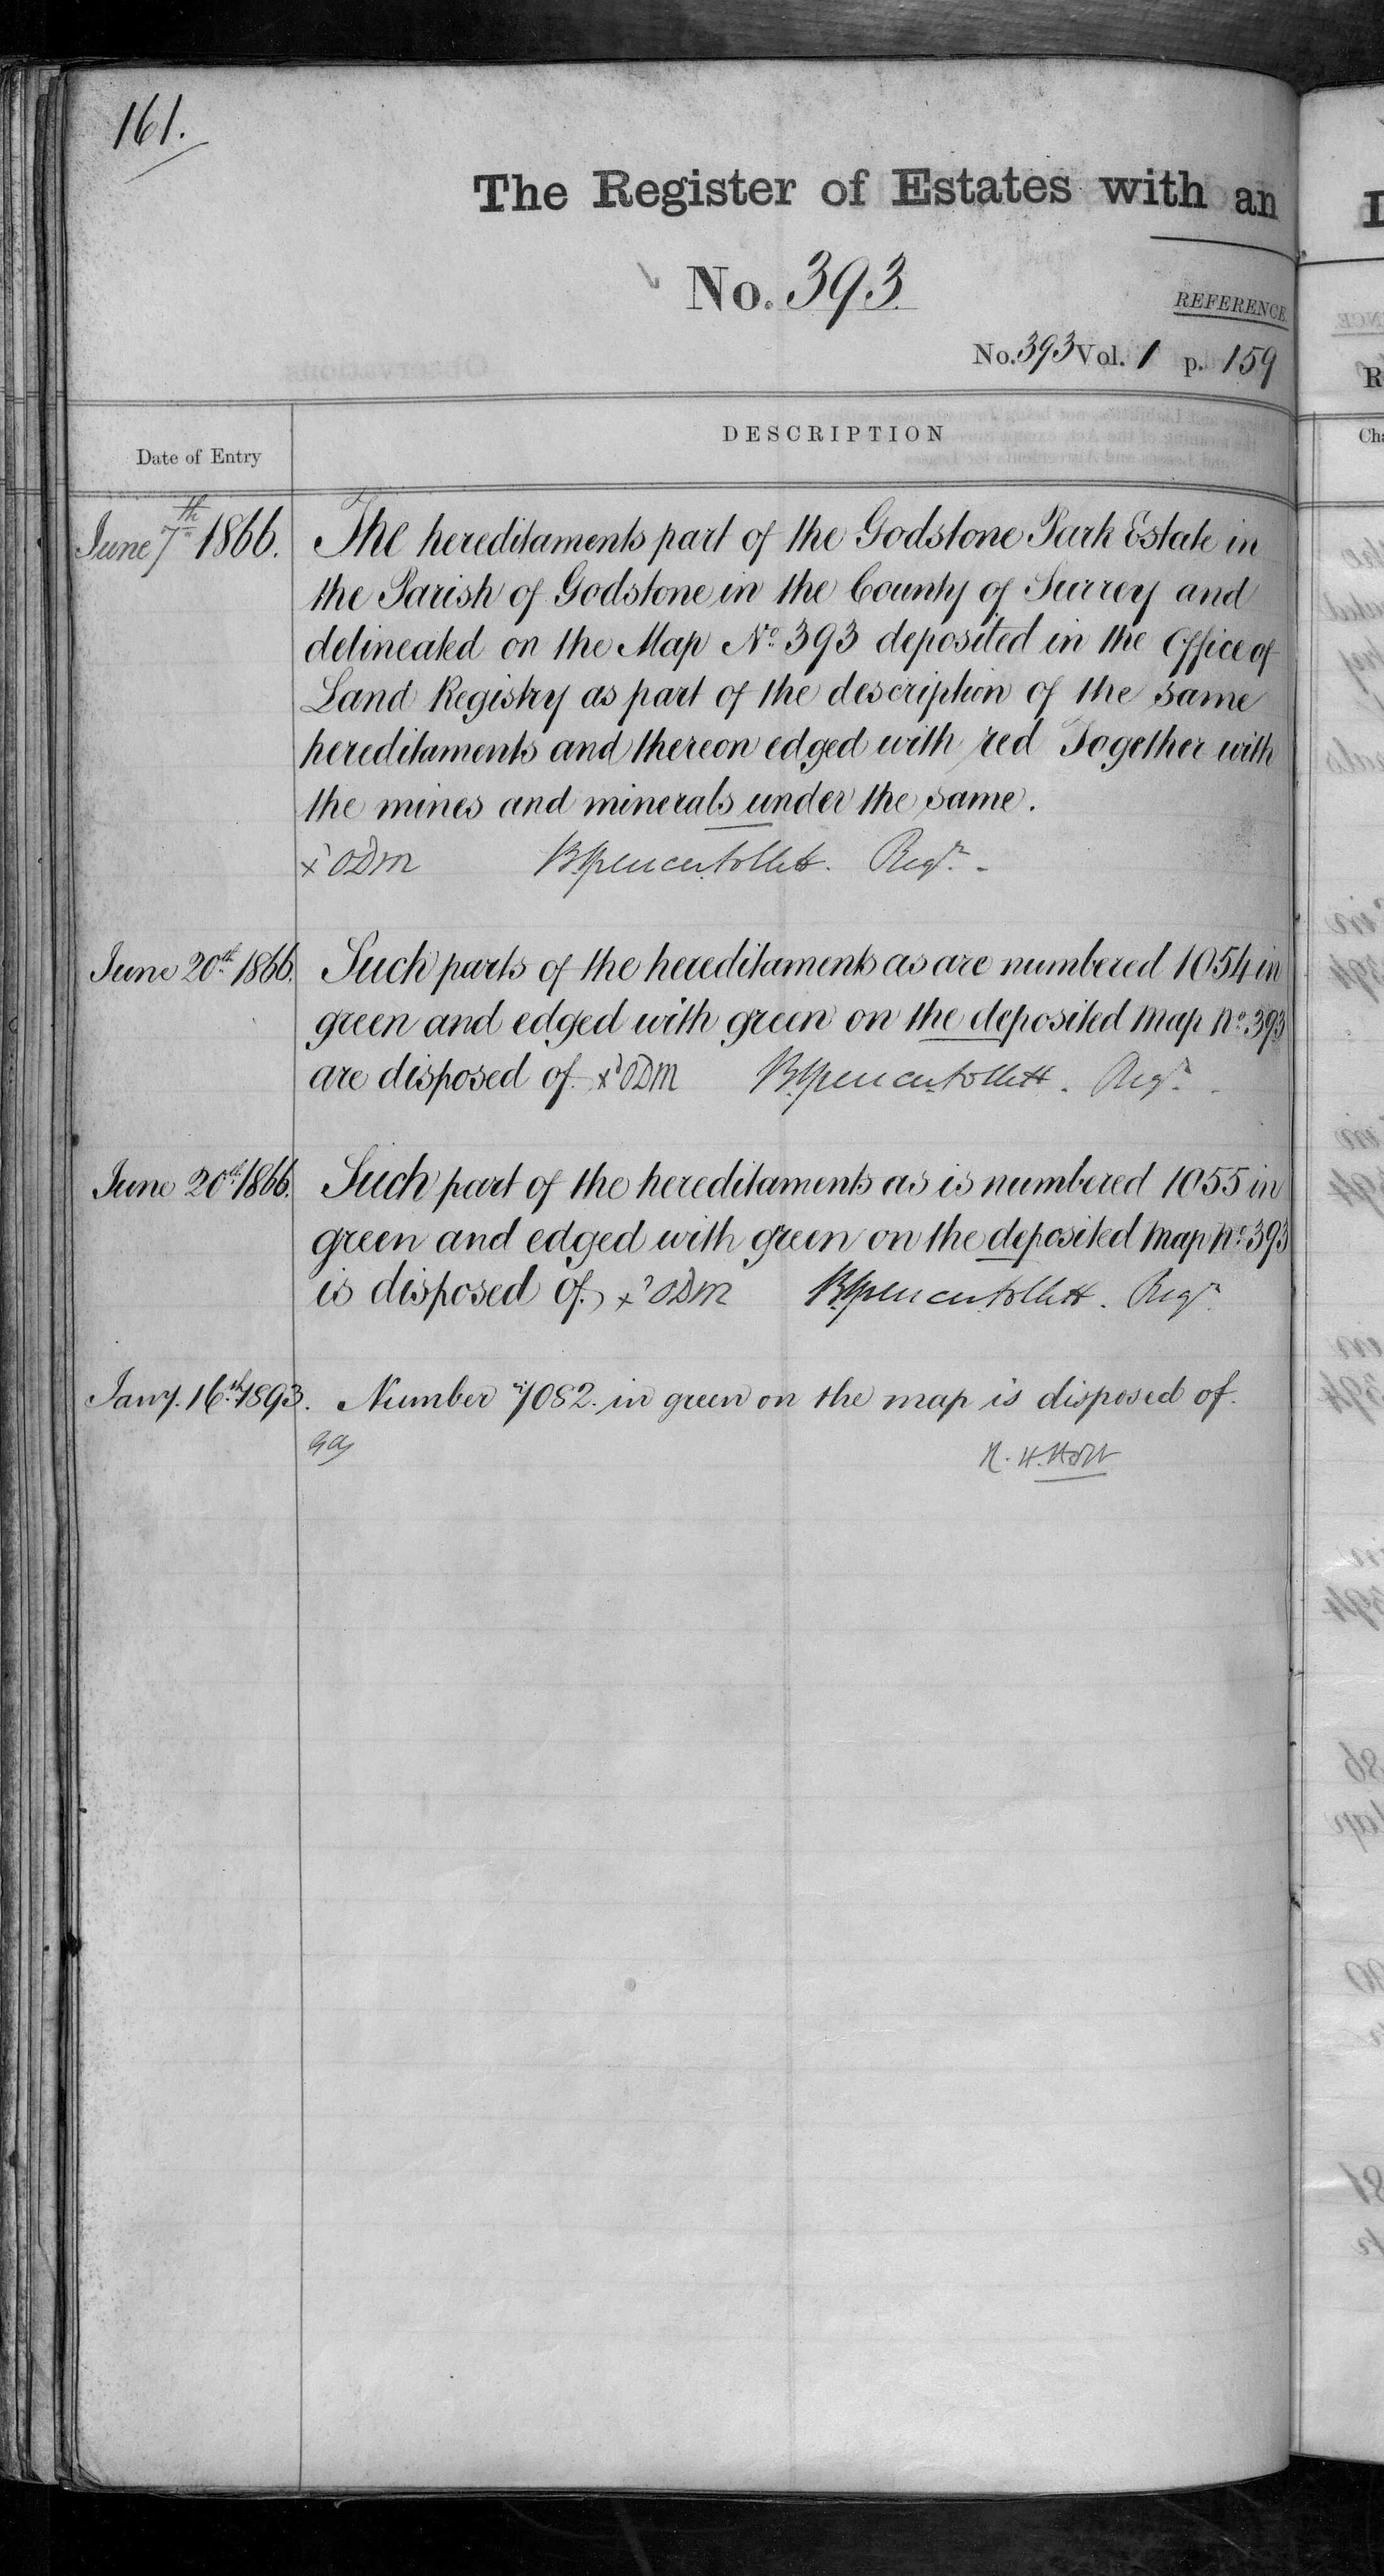 161.
The Register of Estates with an
No. 393.
REFERENCE.
No. 393 Vol. 1 p. 159
Date of Entry
DESCRIPTION
June 7th 1866. The hereditaments part of the Godstone Park Estate in
the Parish of Godstone in the County of Surrey and
delineated on the Map No. 393 deposited in the Office of
Land Registry as part of the description of the same
hereditaments and thereon edged with red Together with
the mines and minerals under the same.
x' ODM BSpencerfollett. Regr.
June 20th 1866. Such parts of the hereditaments as are numbered 1054 in
green and edged with green on the deposited Map No. 393
are disposed of. x' ODM BSpencerfollett. Regr.
June 20th 1866. Such part of the hereditaments as is numbered 1055 in
green and edged with green on the deposited Map No. 393
is disposed of. x' ODM BSpencerfollett. Regr.
Jany. 16th 1893. Number 7082. in green on the map is disposed of.
R. H. Holt